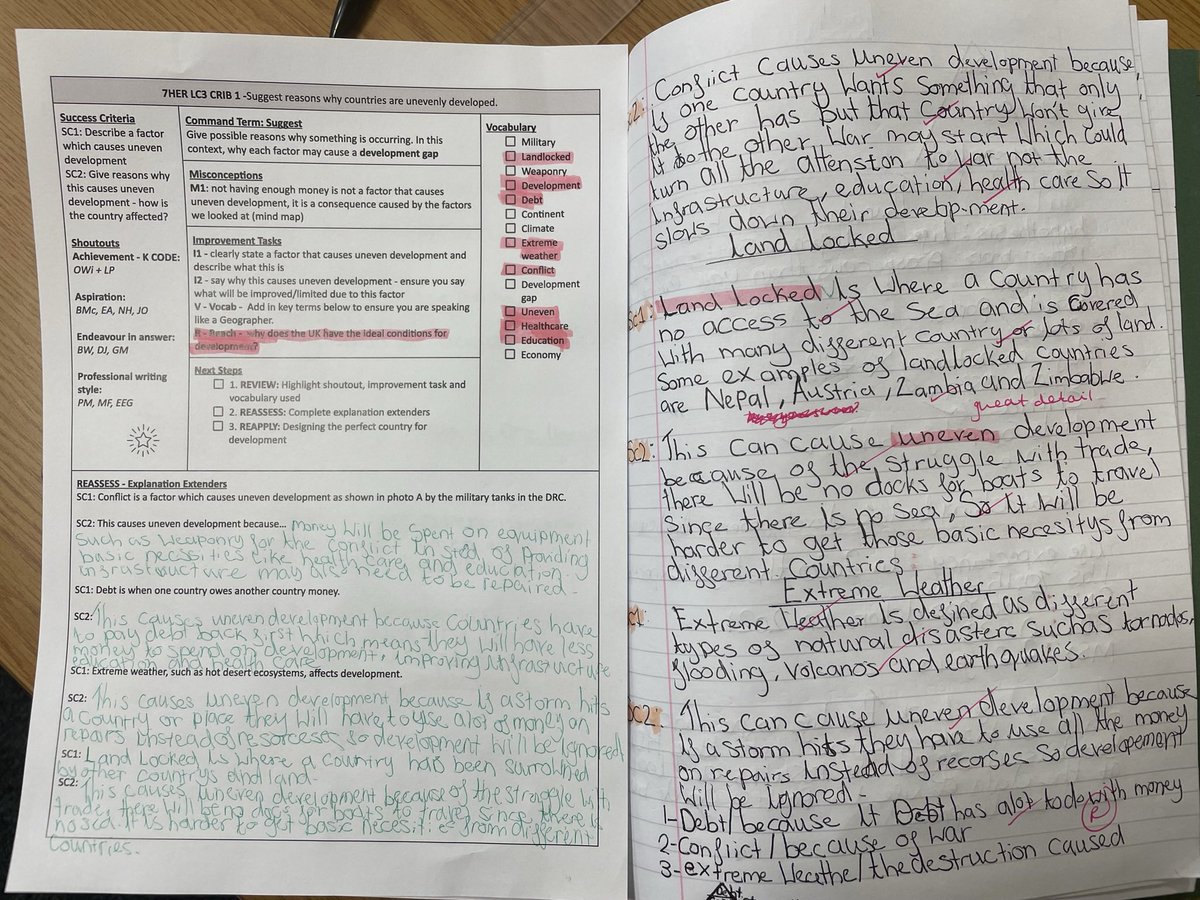 7HER LC3 CRIB 1 -Suggest reasons why countries are unevenly developed.
Success Criteria
SC1: Describe a factor
which causes uneven
development
SC2: Give reasons why
this causes uneven
development - how is
the country affected?
Shoutouts
Achievement - K CODE:
OWi + LP
Aspiration:
BMc, EA, NH, JO
Endeavour in answer:
BW, DJ, GM
Professional writing
style:
PM, MF, EEG
Command Term: Suggest
Give possible reasons why something is occurring. In this
context, why each factor may cause a development gap
Misconceptions
M1: not having enough money is not a factor that causes
uneven development, it is a consequence caused by the factors
we looked at (mind map)
Improvement Tasks
I1 - clearly state a factor that causes uneven development and
describe what this is
I2 - say why this causes uneven development - ensure you say
what will be improved/limited due to this factor
V - Vocab - Add in key terms below to ensure you are speaking
like a Geographer.
R - Reach - why does the UK have the ideal conditions for
development?
Next Steps
1. REVIEW: Highlight shoutout, improvement task and
vocabulary used
2. REASSESS: Complete explanation extenders
3. REAPPLY: Designing the perfect country for
development
Vocabulary
Military
Landlocked
Weaponry
Development
Debt
Continent
Climate
Extreme
weather
Conflict
Development
gap
Uneven
Healthcare
Education
Economy
REASSESS - Explanation Extenders
SC1: Conflict is a factor which causes uneven development as shown in photo A by the military tanks in the DRC.
SC2: This causes uneven development because... Money will be spent on equipment
such as weaponry for the conflict insted of providing
basic necssities like health care and education.
infrastructure may also need to be repaired.
SC1: Debt is when one country owes another country money.
SC2: This causes uneven development because countries have
to pay debt back first which means they will have less
money to spend on development, improving infrastucture
and health care.
SC1: Extreme weather, such as hot desert ecosystems, affects development.
SC2: This causes uneven development because if a storm hits
a country or place they will have to use alot of money on
repairs instead of resorces so development will be ignored
SC1: Land locked is where a country has been surrowned
by other countrys and land.
SC2: This causes uneven development because of the struggle with
trade, there will be no docs for boats to travel since there is
no sea. It is harder to get basic necesities from different
countries.
Conflict causes uneven development because,
is one country wants something that only
the other has but that country won't give
it to the other. War may start which could
turn all the attenston to war not the
infrastructure, education, health care so it
slows down their develop-ment.
Land Locked
SC1: Land Locked is where a country has
no access to the sea and is covered
with many different country or lots of land.
Some examples of landlocked countries
are Nepal, Austria, Zambia and Zimbabwe.
great detail
SC2: This can cause uneven development
because of the struggle with trade,
there will be no docks for boats to travel
since there is no sea, so it will be
harder to get those basic necesitys from
different countries.
Extreme Weather
Extreme Weather is defined as different
types of natural disasters such as tornados,
flooding, volcanos and earthquakes.
SC2 This can cause uneven development because
if a storm hits they have to use all the money
on repairs instead of recorses so developement
will be ignored.
1-Debt/because it Debt has alot to do with money
R
2-Conflict/because of war
3-extreme Weathe/the destruction caused